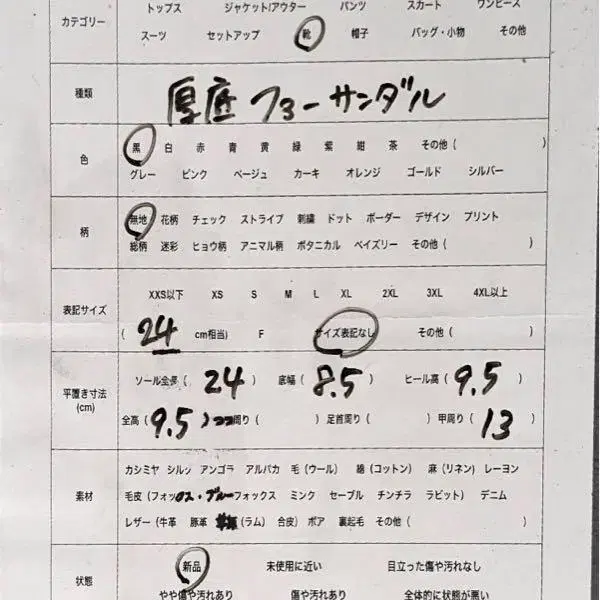 カテゴリー
トップス ジャケット/アウター パンツ スカート ワンピース
スーツ セットアップ 靴 帽子 バッグ・小物 その他
種類
厚底ファーサンダル
色
黒 白 赤 青 黄 緑 紫 紺 茶 その他 ( )
グレー ピンク ベージュ カーキ オレンジ ゴールド シルバー
柄
無地 花柄 チェック ストライプ 刺繍 ドット ボーダー デザイン プリント
総柄 迷彩 ヒョウ柄 アニマル柄 ボタニカル ペイズリー その他 ( )
表記サイズ
XXS以下 XS S M L XL 2XL 3XL 4XL以上
( 24 cm相当) F サイズ表記なし その他 ( )
平置き寸法
(cm)
ソール全長 ( 24 ) 底幅 ( 8.5 ) ヒール高 ( 9.5
全高 ( 9.5 ) 周り ( ) 足首周り ( ) 甲周り ( 13 )
素材
カシミヤ シルク アンゴラ アルパカ 毛 (ウール) 綿 (コットン) 麻 (リネン) レーヨン
毛皮 (フォックス・ブルーフォックス ミンク セーブル チンチラ ラビット) デニム
レザー (牛革 豚革 (ラム) 合皮) ボア 裏起毛 その他 ( )
状態
新品 未使用に近い 目立った傷や汚れなし
やや傷や汚れあり 傷や汚れあり 全体的に状態が悪い